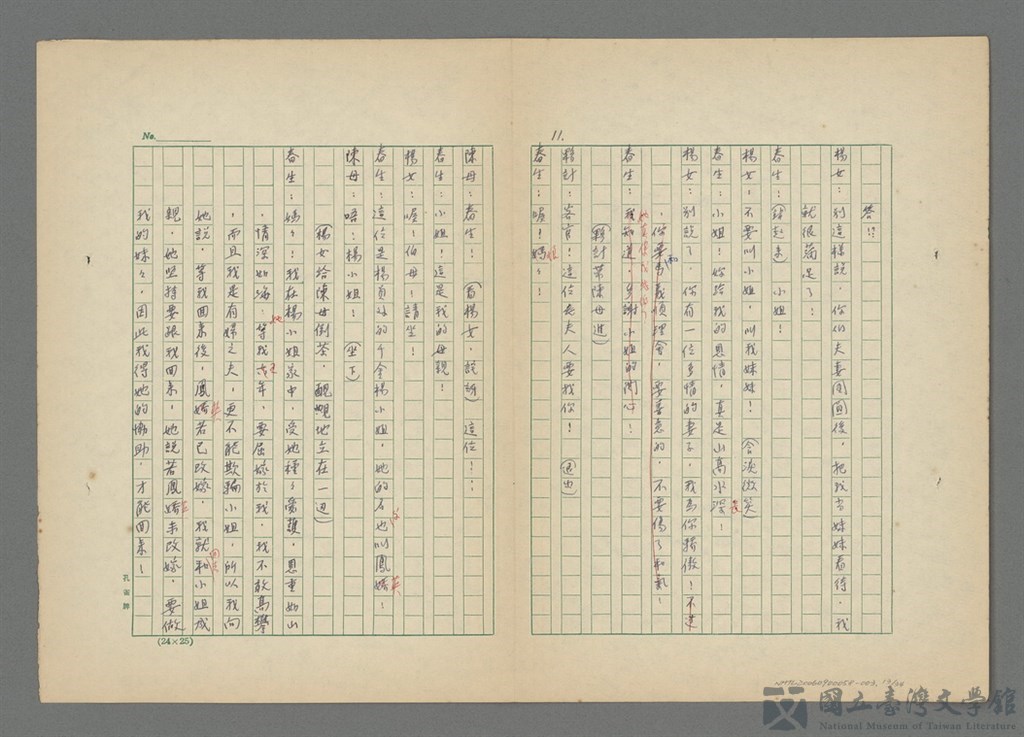 11.
答!!
楊女：別這樣説，你們夫妻閒圓後，把我当妹妹看待，我
就很滿足了！
春生：(站起来) 小姐！
楊女：不要叫小姐，叫我妹妹！ (含淚微笑)
春生：小姐！妳給我的恩情，真是山高水深！
楊女：別説了，你有一位多情的妻子，我為你驕傲！不
，你要和為義 ，要善意的，不要傷了和氣！
春生：我知道，多謝小姐的関心！
(夥計帶陳母進)
夥計：客官！這位老夫人要找你！ (退出)
春生：喔！媽々！
陳母：春生！ (看楊女，説訴) 這位！！
春生：小姐！這是我的母親！
楊女：喔！伯母！請坐！
春生：這位是楊員外的千金楊小姐，她的名也叫鳳嬌！
陳母：唔！楊小姐！ (坐下)
(楊女给陳母倒茶，靦覥地立在一边)
春生：媽々！我在楊小姐家中，受她種々愛護，恩重如山
，情深如海，等我六年，要屈嫁於我，我不敢高攀
，而且我是有婦之夫，更不能欺騙小姐，所以我向
她説，等我回来後，鳳嬌若已改嫁，我就和小姐成
親，她坚持要跟我回来，她説若鳳嬌未改嫁，要做
我的妹々，因此我得她的協助，才能回来！
No.
孔雀牌
(24×25)
國立臺灣文學館
National Museum of Taiwan Literature